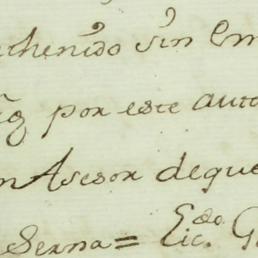 thenido sin em
por este auto
n Asesor deque
Serna = Lic.do G